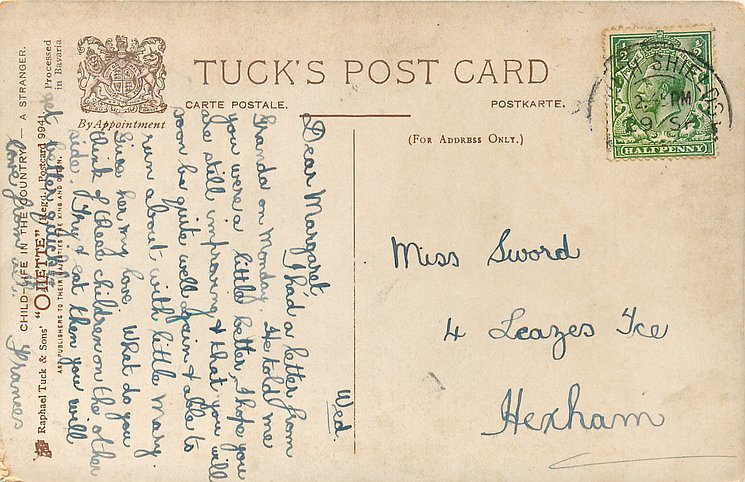 TUCK'S POST CARD
CARTE POSTALE.
POSTKARTE.
By Appointment
(FOR ADDRESS ONLY.)
HALFPENNY
SHIELDS
PM
Miss Sword
4 Leazes Tce
Hexham
Wed.
Dear Margaret,
I had a letter from
Granda on Monday. He told me
you were a little better, I hope you
are still improving & that you will
soon be quite well again & able to
run about with little Mary.
Give her my love. What do you
think of these children on the other
side. Try & eat then you will
get better quickly.
Love from all.
Frances
Processed
in Bavaria
CHILD-LIFE IN THE COUNTRY — A STRANGER.
Raphael Tuck & Sons' "OILETTE" (Regd.) Postcard 9941
ART PUBLISHERS TO THEIR MAJESTIES THE KING AND QUEEN.